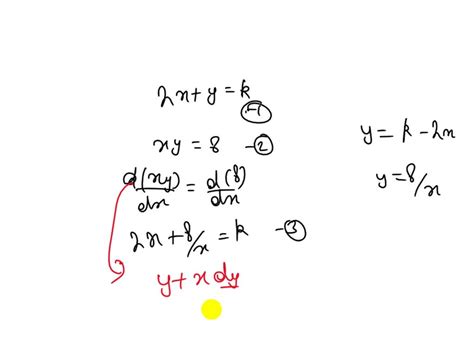 2x + y = k -①
xy = 8 -②
d(xy)/dx = d(8)/dx
2x + 8/x = k -③
y + x dy
y = k - 2x
y = 8/x